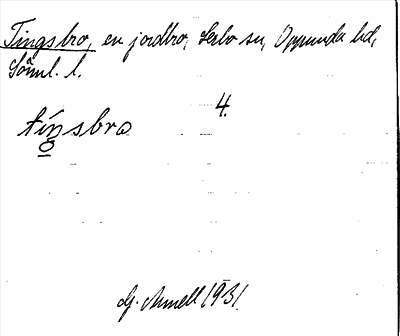 Tingsbro, en jordbro, Lerbo sn, Oppunda hd,
Söml. l.
4.
tíŋsbro
G. Amell 1931.